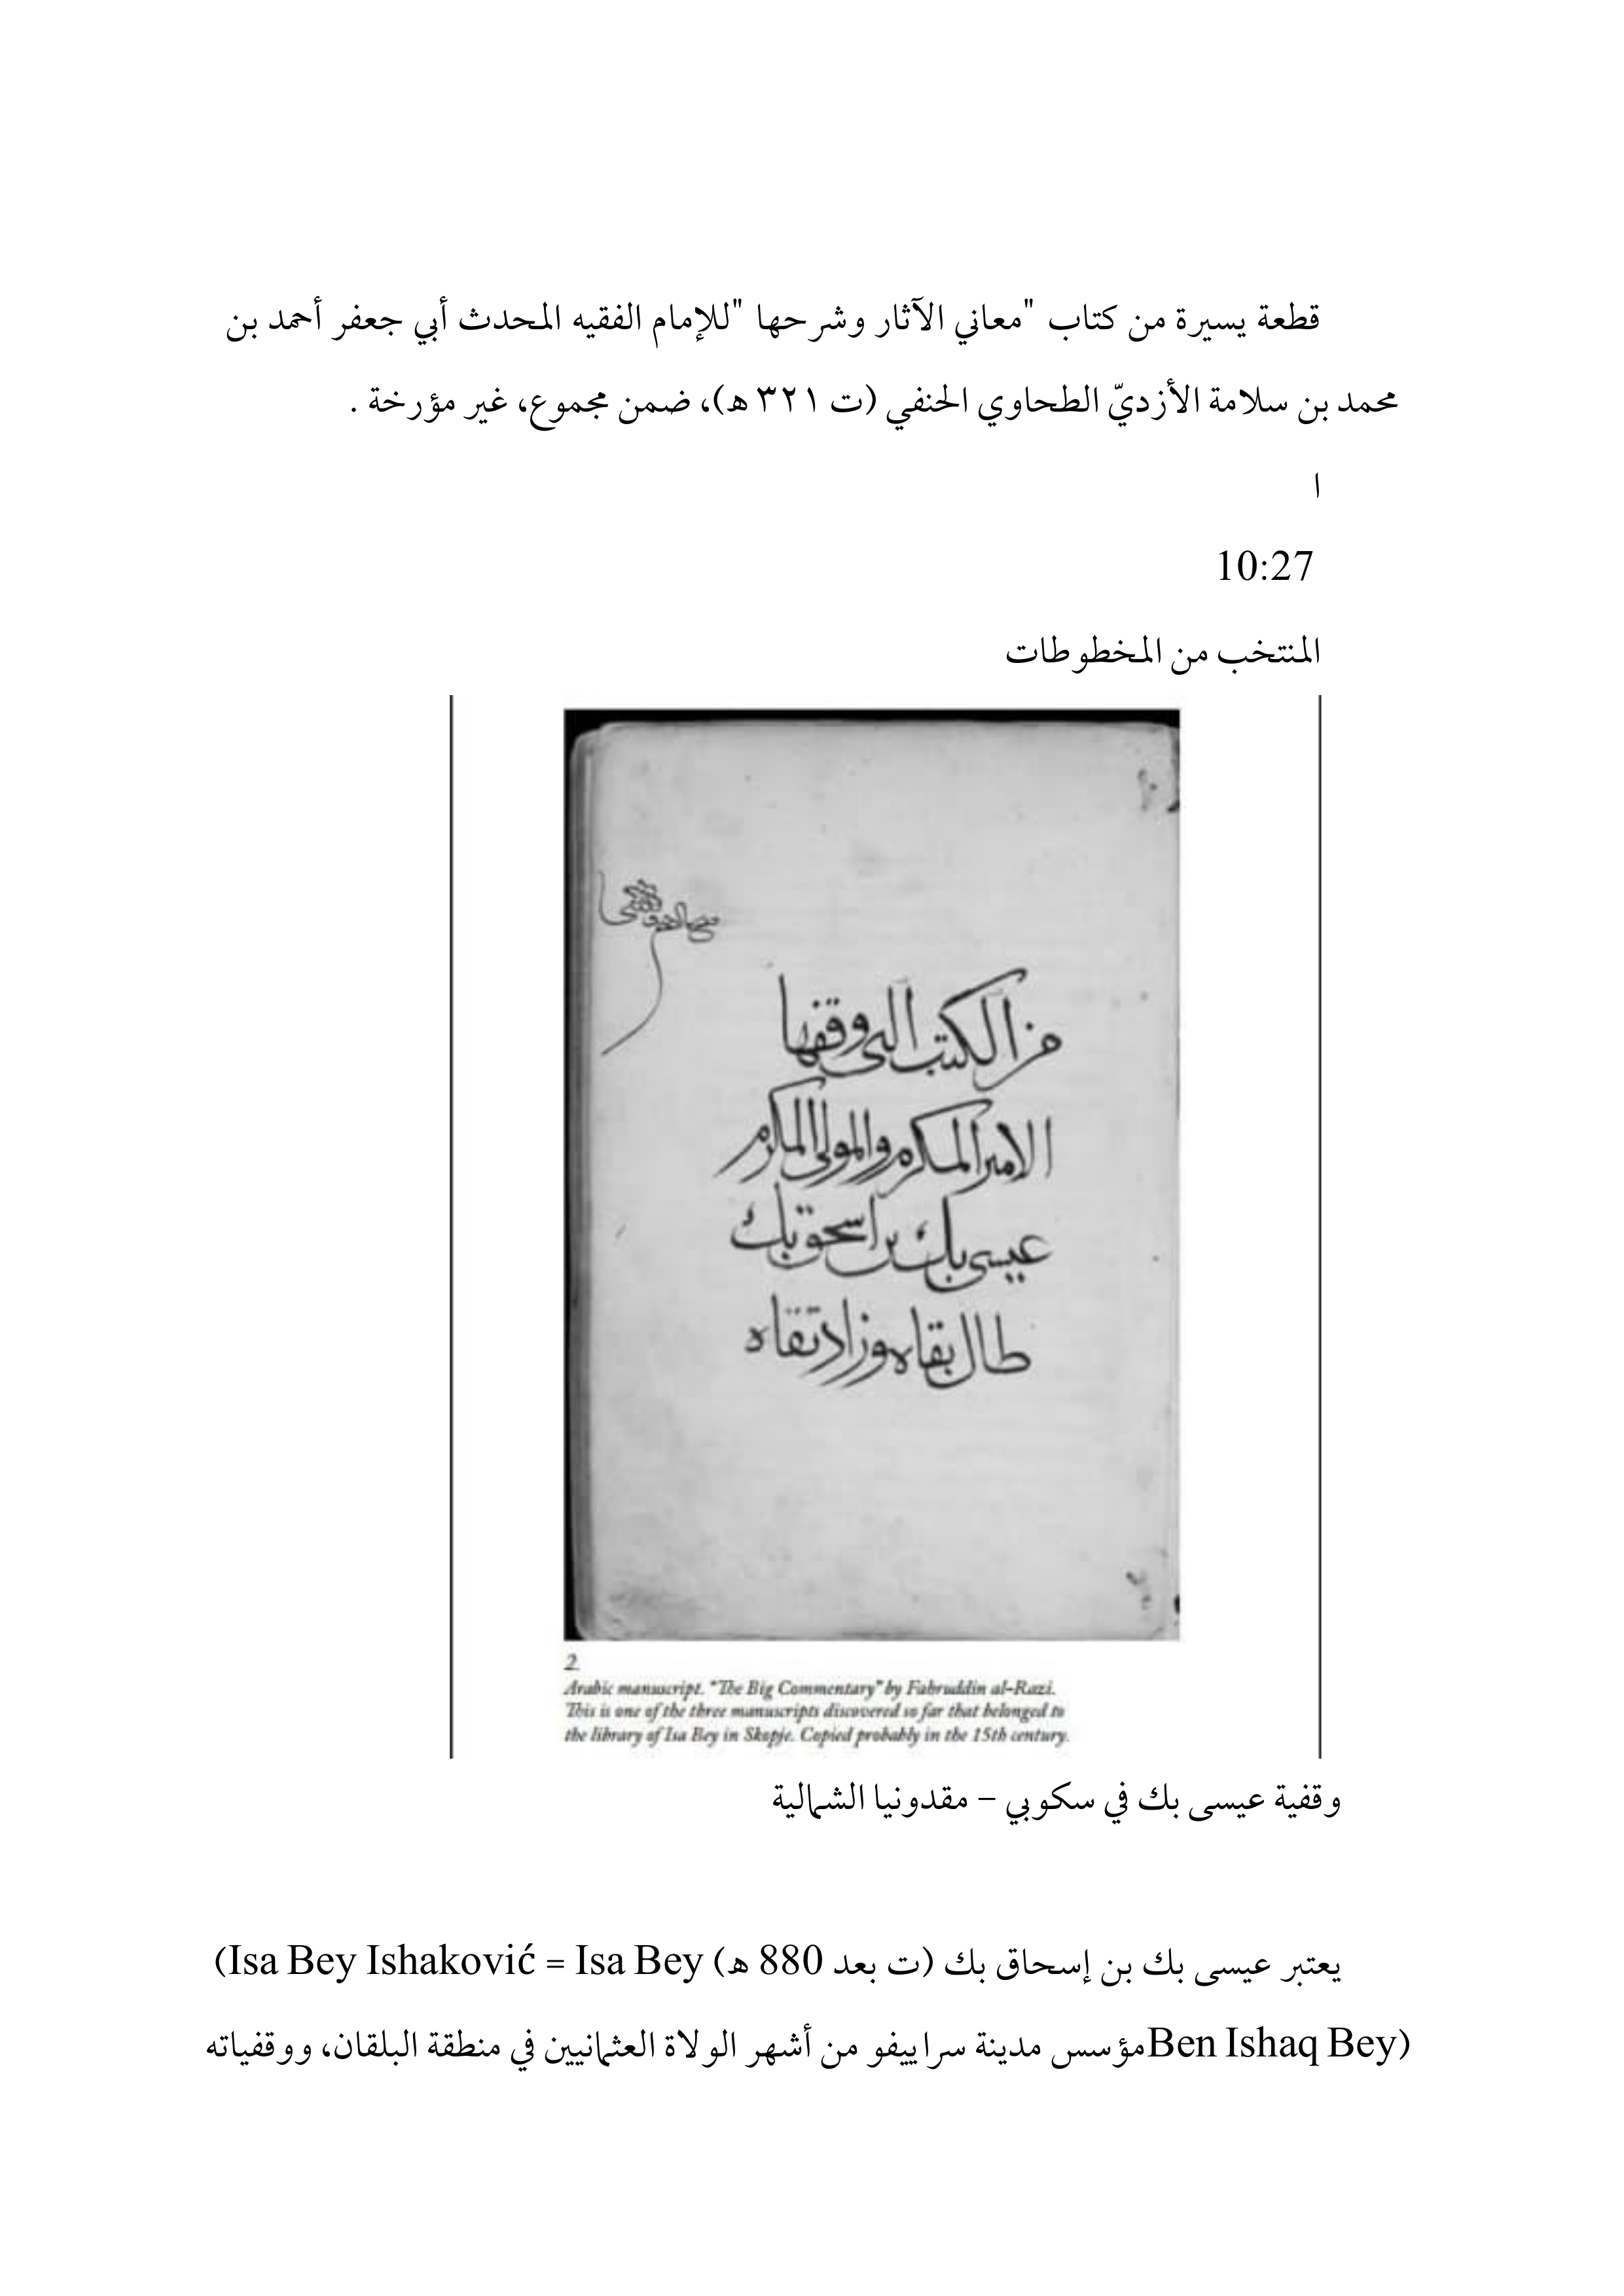 قطعة يسيرة من كتاب "معاني الآثار وشرحها "للإمام الفقيه المحدث أبي جعفر أحمد بن
محمد بن سلامة الأزديّ الطحاوي الحنفي (ت ٣٢١ هـ)، ضمن مجموع، غير مؤرخة .
ا
10:27
المنتخب من المخطوطات
من الكتب التى وقفها
الامير المكرم والمولى المكرم
عيسى بك بن اسحق بك
طال بقاه وزاد تقاه
2
Arabic manuscript. "The Big Commentary" by Fahruddin al-Razi.
This is one of the three manuscripts discovered so far that belonged to
the library of Isa Bey in Skopje. Copied probably in the 15th century.
وقفية عيسى بك في سكوبي – مقدونيا الشمالية
يعتبر عيسى بك بن إسحاق بك (ت بعد 880 هـ) (Isa Bey Ishaković = Isa Bey
Ben Ishaq Bey)مؤسس مدينة سراييفو من أشهر الولاة العثمانيين في منطقة البلقان، ووقفياته